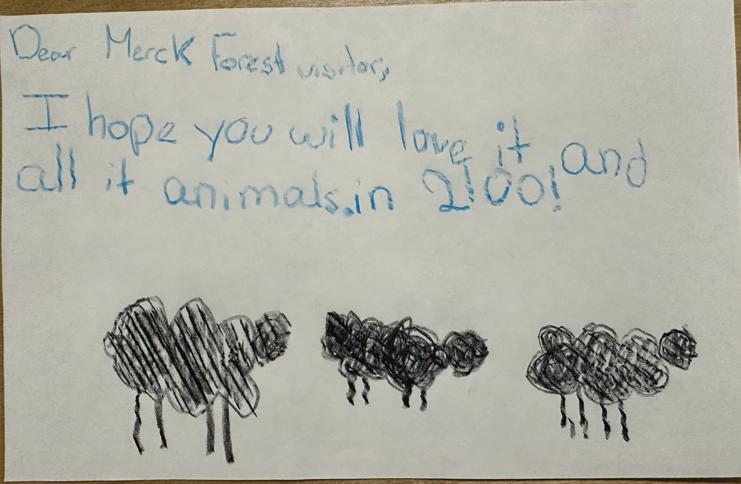 Dear Merck Forest visitor,
I hope you will love it and
all it animals.in 2100!